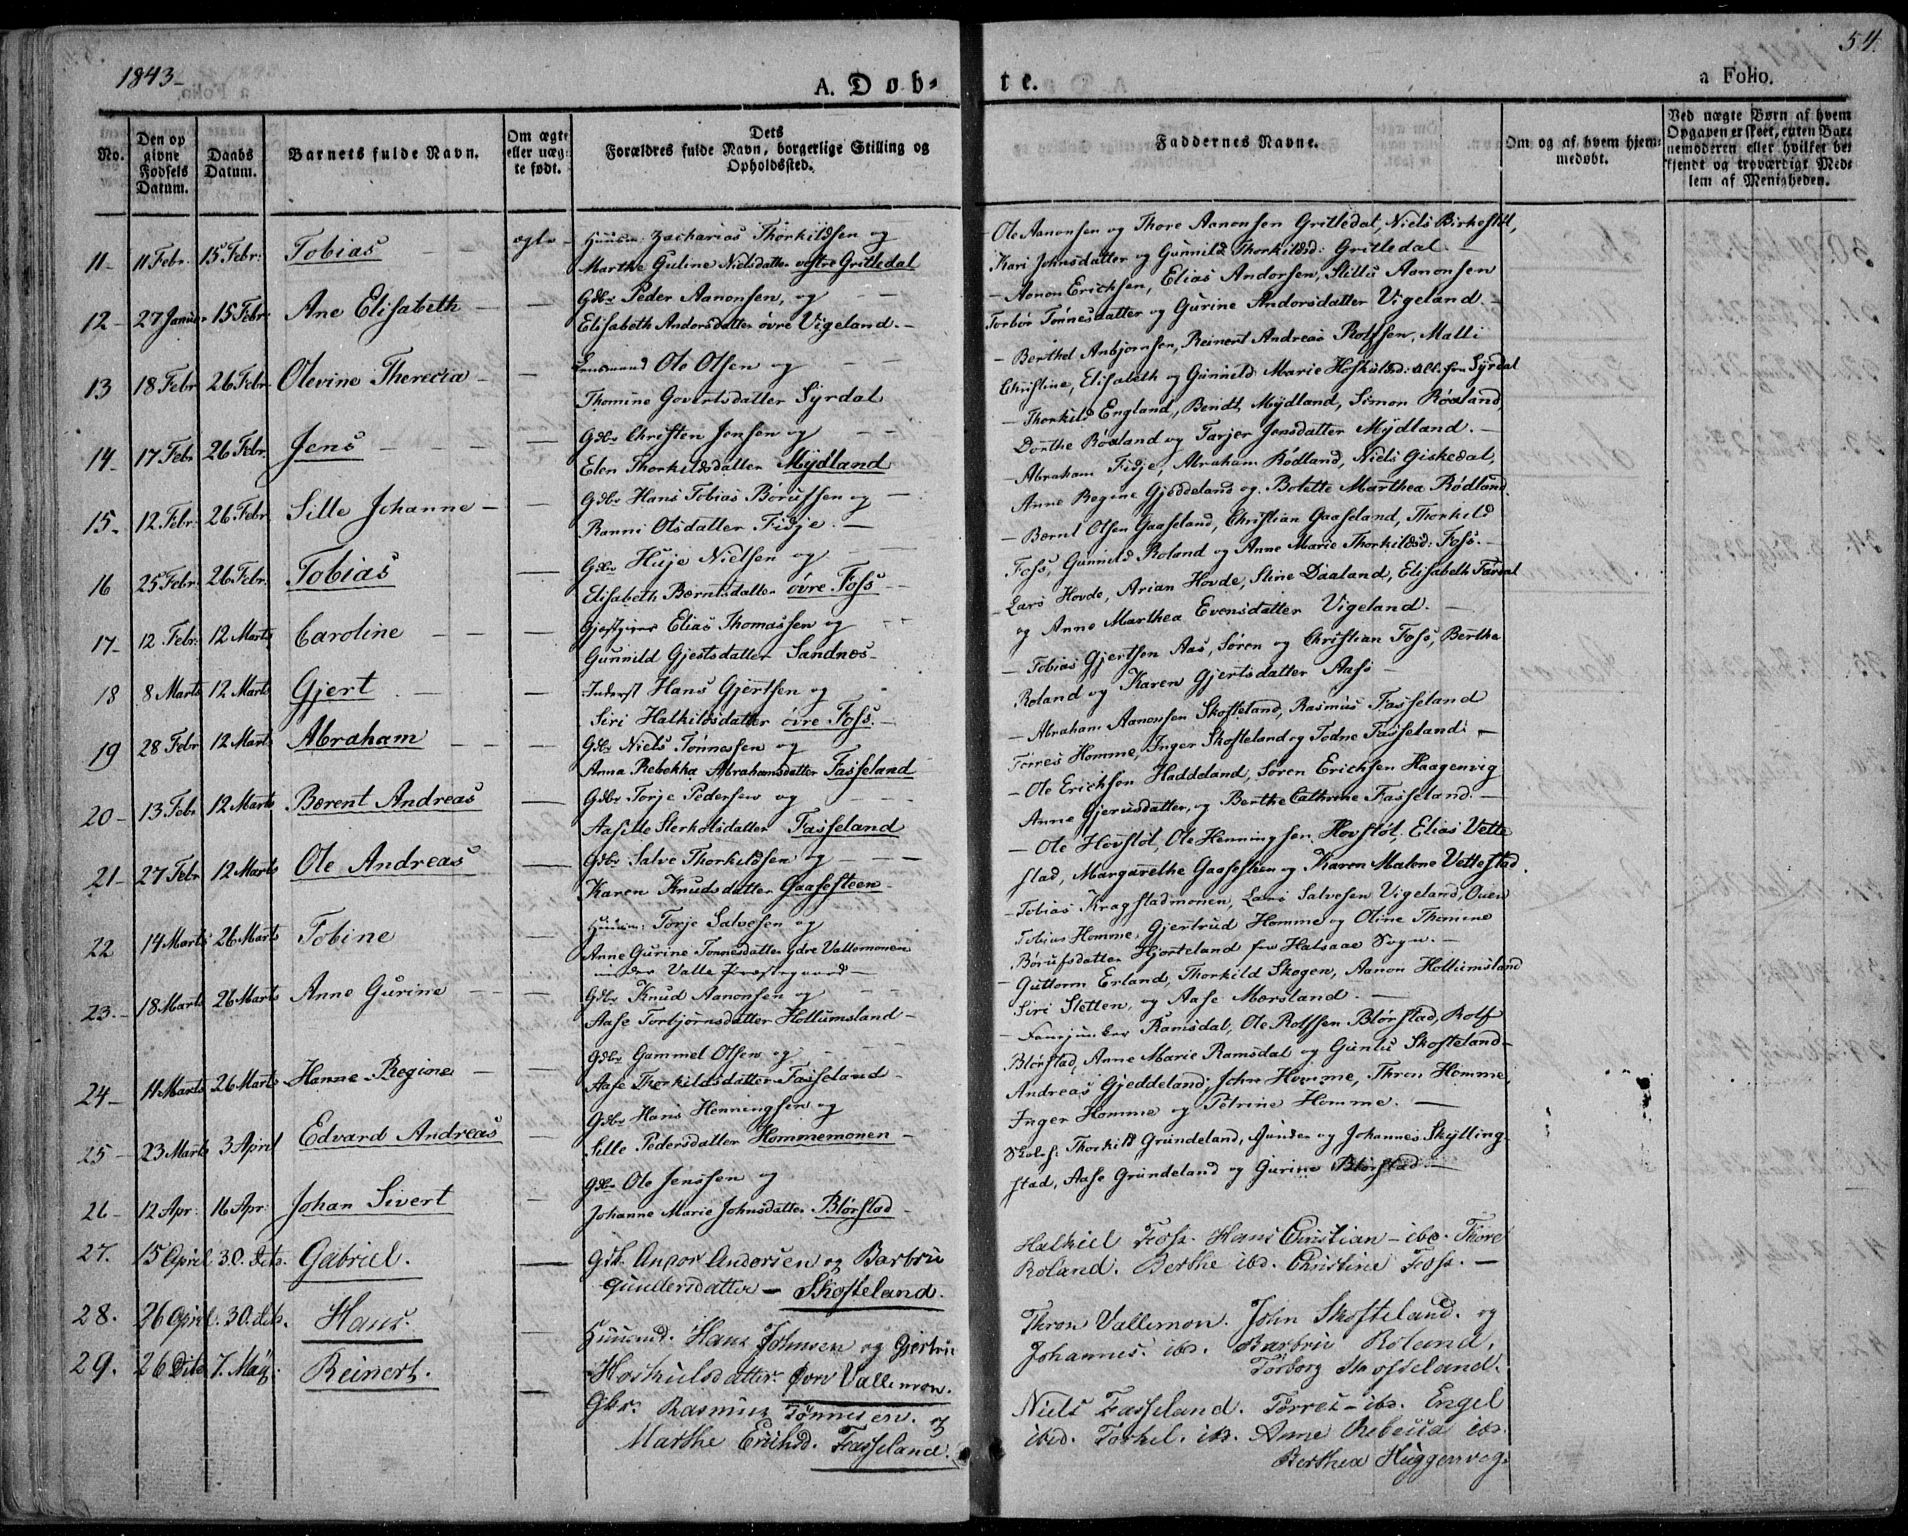 1843 –
54.
A. Døb-
te.
a Folio.
No.
Den op
givne
Fødsels
Datum.
Daabs
Datum.
Barnets fulde Navn.
Om ægte
eller uæg-
te født.
Dets
Forældres fulde Navn, borgerlige Stilling og
Opholdssted.
Faddernes Navne.
Om og af hvem hjem-
medøbt.
Ved uægte Børn af hvem
Opgaven er skeet, enten Bar-
nemoderen eller hvilket be-
kjendt og troværdigt Med-
lem af Menigheden.
11 – 11 Febr. 15 Febr: Tobias ægte – Huusm: Zacharias Thorkildsen og
Marthe Guline Nielsdatter vestre Gritledal
Ole Aanonsen og Thore Aanonsen Gritledal, Niels Birkestøl,
Kari Johnsdatter og Gunnild Thorkildsd: Gritledal. –
12 – 27 Januar 15 Febr: Ane Elisabeth – Gdbr Peder Aanonsen, og
Elisabeth Andersdatter øvre Vigeland. –
– Aanon Erichsen, Elias Andorsen, Stilluf Aanonsen
Torbør Tønnesdatter og Gurine Andorsdatter Vigeland –
13 18 Febr 26 Febr. Olevine Therecia – Ole Olsen og
Thomine Govertsdatter Syrdal
– Berthel Anbjørnsen, Reinert Andreas Rolfsen, Malli
Christine, Elisabeth og Gunneld Marie Høskildsd: alle fra Syrdal
14 – 17 Febr 26 Febr. Jens – Gdbr Christen Jensen og –
Elen Thorkildsdatter Mydland
– Thorkild England, Bendt Mydland, Simon Røaland,
Dorthe Røaland og Tarjer Jensdatter Mydland. –
15 – 12 Febr. 26 Febr Sille Johanne – Gdbr Hans Tobias Børufsen og –
Ranni Olsdatter Fidje. –
– Abraham Fidje, Abraham Rødland, Niels Giskedal,
Anne Regine Gjeddeland og Bolette Marthea Rødland.
16 25 Febr. 26 Febr. Tobias – Gdbr Huje Nielsen og –
Elisabeth Berntsdatter øvre Foss –
– Bernt Olsen Gaaseland, Christian Gaaseland, Thorkild
Foss, Gunnild Roland og Anne Marie Thorkildsd: Foss. –
17 – 12 Febr. 12 Marts Caroline – Gjestgiver Elias Thomassen og
Gunnild Gjestsdatter Sandnes –
– Lars Hovde, Arian Hovde, Stine Daaland, Elisabeth Fardal
og Anne Marthea Evensdatter Vigeland. –
18 8 Marts 12 Marts Gjert – Inderst Hans Gjertsen og
Siri Halkildsdatter øvre Foss. –
– Tobias Gjertsen Aas, Søren og Christian Foss, Berthe
Roland og Karen Gjertsdatter Aass –
19 28 Febr 12 Marts Abraham – Gdbr Niels Tønnessen og
Anna Rebekka Abrahamsdatter Fasseland
– Abraham Aanonsen Skofteland, Rasmus Fasseland
Torres Homme, Inger Skofteland og Todne Fasseland. –
20 – 13 Febr 12 Marts Bærent Andreas – Gdbr Torje Pedersen og
Aasille Sterkolsdatter Fasseland
– Ole Erichsen Haddeland, Søren Erichsen Haagenvig
Anne Gjerusdatter, og Berthe Cathrine Fasseland. –
21 – 27 Febr 12 Marts Ole Andreas – Gdbr Salve Thorkildsen og
Karen Knudsdatter Gaasesteen –
– Ole Hovstøl, Ole Henningsen Hovstøl, Elias Vette
stad, Margarethe Gaasesteen og Karen Malene Vettestad.
22 14 Marts 26 Marts Tobine – Huusm: Torje Salvesen og
Anne Gurine Tønnesdatter ydre Vallemonen
under Valle Præstegaard –
– Tobias Kragstadmonen, Lars Salvesen Vigeland, Ouen
Tobias Homme, Gjertrud Homme og Oline Thomine
Børufsdatter Hjorteland fra Halsaae Sogn. –
23. – 18 Marts 26 Marts Anne Gurine – Gdbr Knud Aanonsen og
Aase Torbjørnsdatter Hollumsland –
– Guttorm Erland, Thorkild Skogen, Aanon Hollumsland
Siri Sletten, og Aase Mærsland. –
24 – 11 Marts 26 Marts Hanne Regine – Gdbr Gammel Olsen og
Aase Thorkildsdatter Fasseland –
– Fenrjunker Ramsdal, Ole Rolfsen Blørstad, Rolf
Blørstad, Anne Marie Ramsdal og Guntu Skofteland –
25 – 23 Marts 3 April Edvard Andreas – Gdbr Hans Henningsen og
Sille Pedersdatter Hommemonen –
Andreas Gjeddeland, John Homme, Thron Homme,
Inger Homme og Petrine Homme. –
26 – 12 Apr: 16 Apr: Johan Sivert – Gdbr Ole Jenssen og
Johanne Marie Johnsdatter Blørstad –
Skoleh: Thorkild Grundeland, Gunder og Johannes Skylling
stad, Aase Grundeland og Gurine Blørstad. –
27. 15 April 30. dito. Gabriel. – Gbr. Andor Andersen og Barbru
Gundersdatter – Skofteland.
Halkiel Foss. Hans Christian – ibd. Thore
Roland. Berthe ibd. Christine Foss. –
28. 26 April. 30. dito. Hans. Huusmd. Hans Johnsen og Gjertru
Høskuldsdatter. Øvre Vallemon.
Thron Vallemon. John Skofteland. og
Johannes. ibd. Barbru Roland,
Torborg Skofteland.
29. 26 Dito 7. May. Reinert. – Gbr. Rasmus Tønnesen. og
Marthe Erichsd. Fasseland.
Niels Fasseland. Torres – ibd. Engel
ibid. Torkel. ibd. Anne Rebecca ibd.
Berthea Haggenvog.